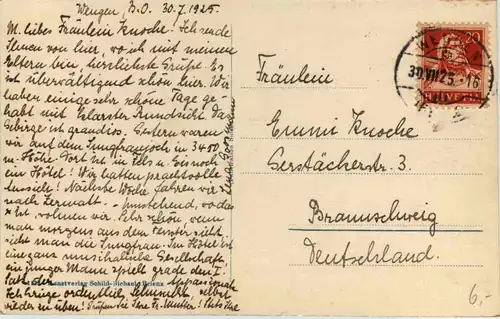 Wengen, B.O. 30.7.1925.
M. liebes Fräulein Knoche! Ich sende
Ihnen von hier, wo ich mit meinen
Eltern bin, herzlichste Grüße. Es
ist überwältigend schön hier. Wir
haben einige sehr schöne Tage ge-
habt mit klarster Rundsicht. Das
Gebirge ist grandios. Gestern waren
wir auf dem Jungfraujoch in 3400
m. Höhe. Dort ist in Fels u. Eis noch
ein Hotel! Wir hatten prachtvolle
Aussicht! Nächste Woche fahren wir
nach Zermatt. - Umstehend, wo das
x ist, wohnen wir. Sehr schön, wenn
man morgens aus dem Fenster sieht
sieht man die Jungfrau. Im Hotel ist
eine ganz musikalische Gesellschaft
ein junger Mann spielt grade den I.
Satz der Appassionata
Ich kriege ordentlich Sehnsucht, selbst
wieder zu üben! Grüßen Sie Ihre Fr. Mutter! Stets Ihre
Kunstverlag Schild-Bichsel, Brienz
Fräulein
Emmi Knoche
Gerstäckerstr. 3.
Braunschweig
Deutschland.
20
HELVETIA
30.VII.25.-16
6.-